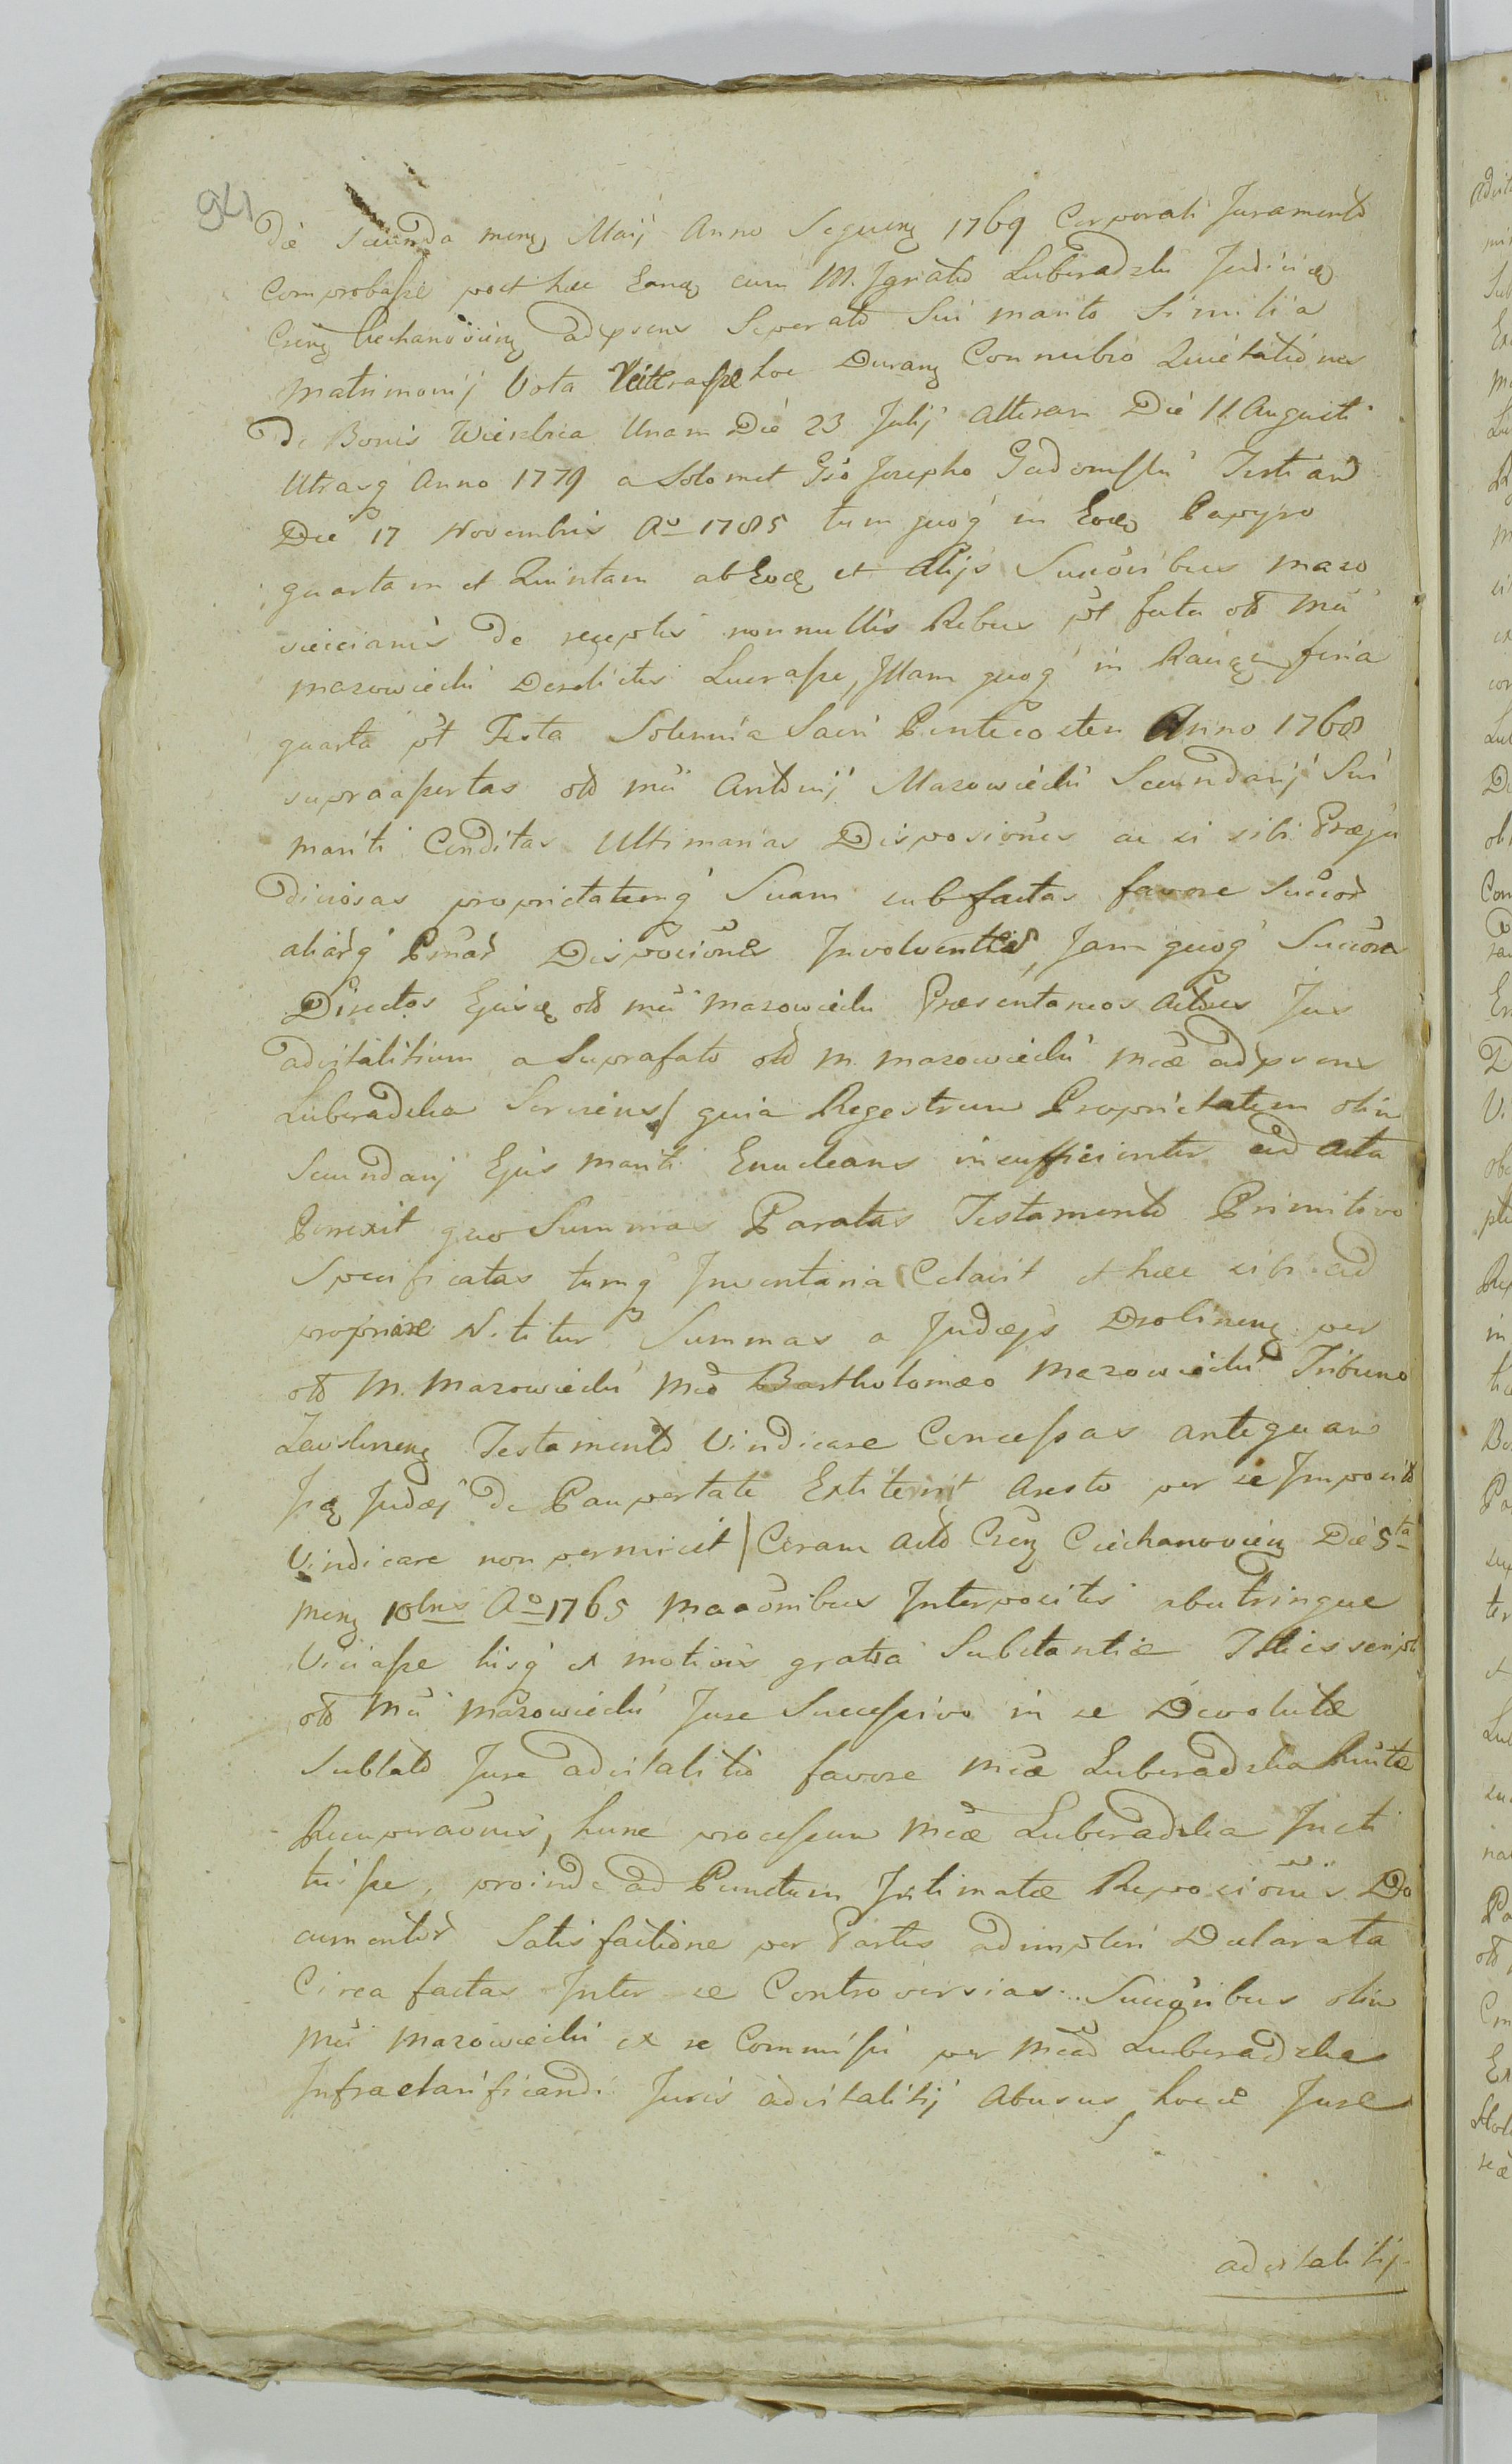 941
Die Secunda menz Maij Anno Sequenz 1769 Corporali Juramento
Comprobasse post hec Eanq cum M. Ignatio Luberadzki Judicii
Csenz Ciechanoviens adpsens Seperato Sui marito Similia
Matrimonij Vota Reiterasse hoc Duranz Connubio Quietationes
De Bonis Wierzbica Unam Die 23 Julij alteram Die 11 Augusti
Utrasq Anno 1779 a Solomet Gso Josepho Gadomski Tertiam
Die 17 Novembris Ao 1785 tum quoq in Eoq Papyro
quartam et Quintam ab Eoq et Alijs Succoribus mazo
vieicianis de receptis nonnullis Rebus pt fata olo Mci
Mazowiecki Derelictis Lucrasse, Illam quoq in feria
quarta pt Festa Solennia Sacri Pentecostes Anno 1768
supraapertas olo mci Antonij Mazowiecki Secundarij Sui
mariti Conditas Ultimarias Disposiones ac si sibi Præju
diciosas proprietatemq Suam subfactas favore Succor
aliarq Psnar Disposiones Involventes, Jam quoq Succores
Directos Ejusq olo mci Mazowiecki Præsentaneos Actores Jus
advitalitium a Suprafato olo M. Mazowiecki Mcæ adpsens
Luberadzka Serviens/ quia Regestrum Proprietatem olim
Secundarij Ejus mariti Enucleans insufficienter ad Acta
Porrexit quo Summas Paratas Testamento Primitivo
Specificatas tumq Inventaria Celavit et hæc sibi ad
propriare Nititur Summas a Judæjs Drobinenz per
olo M. Mazowiecki Mco Bartholomæo Mazowiecki Tribuno
Zawskrnenz Testamento Vindicare Concessas antequam
Isq Judæj de Paupertate Extiterint Aresto per se Imposito
Vindicare non permisit / Coram Acto Csenz Ciechanovienz Die 5ta
Menz 10bris Ao 1765 Maaonibus Interpositis abutrinque
Viciasse hisq et motivis gratia Substantiæ Toties sensi pti
olo Mci Mazowiecki Jure Successivo in se Devolutæ
Sublato Jure advitalitio favore Mcæ Luberadzka
Recuperaonis, hunc processum Mcæ Luberadzka Insti
tuisse, proinde ad Punctum Intimatæ Reposicionis Do
cumentor Satisfactione per Partes adimpleri Declarata
Circa factas Inter se Controversias Succoribus olim
Mci Mazowiecki et se Commissi per Mcam Luberadzka
Infraclarificandi Juris advitalitij Abusus hocce Jure
advitalitij